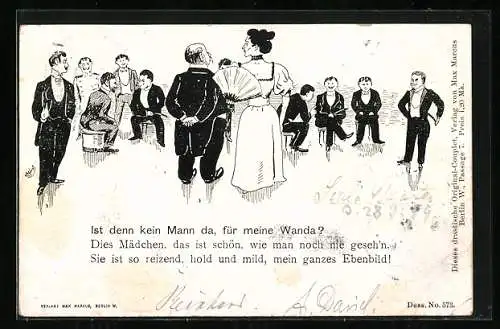 Ist denn kein Mann da, für meine Wanda?
Dies Mädchen, das ist schön, wie man noch nie geseh'n.
Sie ist so reizend, hold und mild, mein ganzes Ebenbild!
VERLAG: MAX MARCUS, BERLIN W.
Dess. No. 572.
Dieses drastische Original-Couplet, Verlag von Max Marcus
Berlin W., Passage 7. Preis 1,20 Mk.